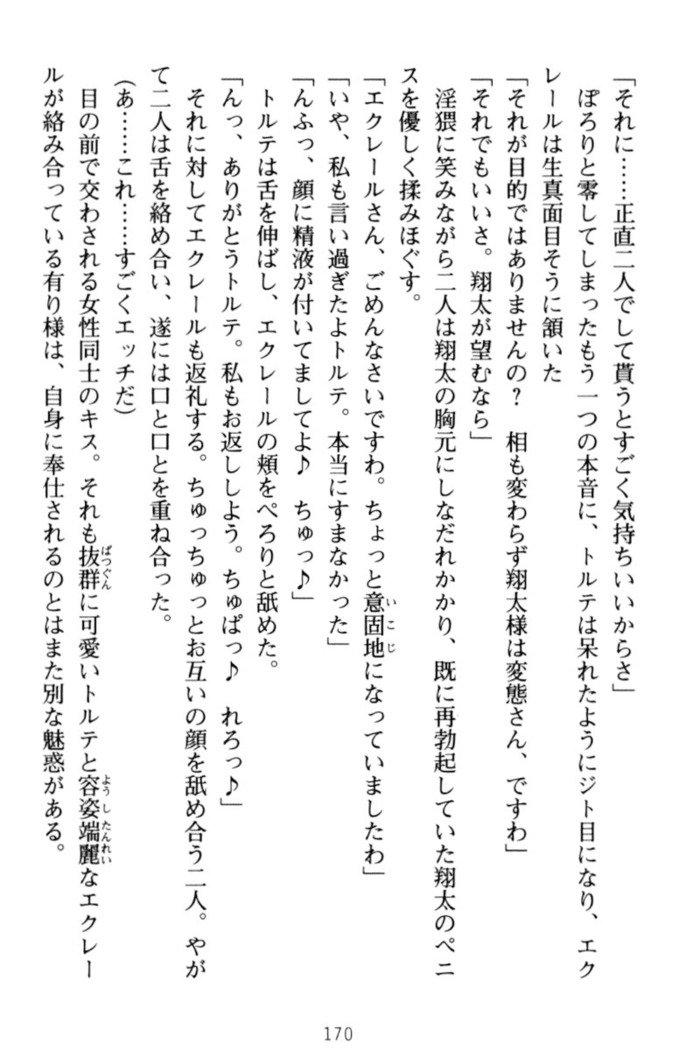 「それに……正直二人でして貰うとすごく気持ちいいからさ」
　ぽろりと零してしまったもう一つの本音に、トルテは呆れたようにジト目になり、エク
レールは生真面目そうに頷いた
「それが目的ではありませんの？　相も変わらず翔太様は変態さん、ですわ」
「それでもいいさ。翔太が望むなら」
　淫猥に笑みながら二人は翔太の胸元にしなだれかかり、既に再勃起していた翔太のペニ
スを優しく揉みほぐす。
「エクレールさん、ごめんなさいですわ。ちょっと意固地になっていましたわ」
「いや、私も言い過ぎたよトルテ。本当にすまなかった」
「んふっ、顔に精液が付いてましてよ♪　ちゅっ♪」
　トルテは舌を伸ばし、エクレールの頬をぺろりと舐めた。
「んっ、ありがとうトルテ。私もお返ししよう。ちゅぱっ♪　れろっ♪」
　それに対してエクレールも返礼する。ちゅっちゅっとお互いの顔を舐め合う二人。やが
て二人は舌を絡め合い、遂には口と口とを重ね合った。
(あ……これ……すごくエッチだ)
　目の前で交わされる女性同士のキス。それも抜群に可愛いトルテと容姿端麗なエクレー
ルが絡み合っている有り様は、自身に奉仕されるのとはまた別な魅惑がある。
170